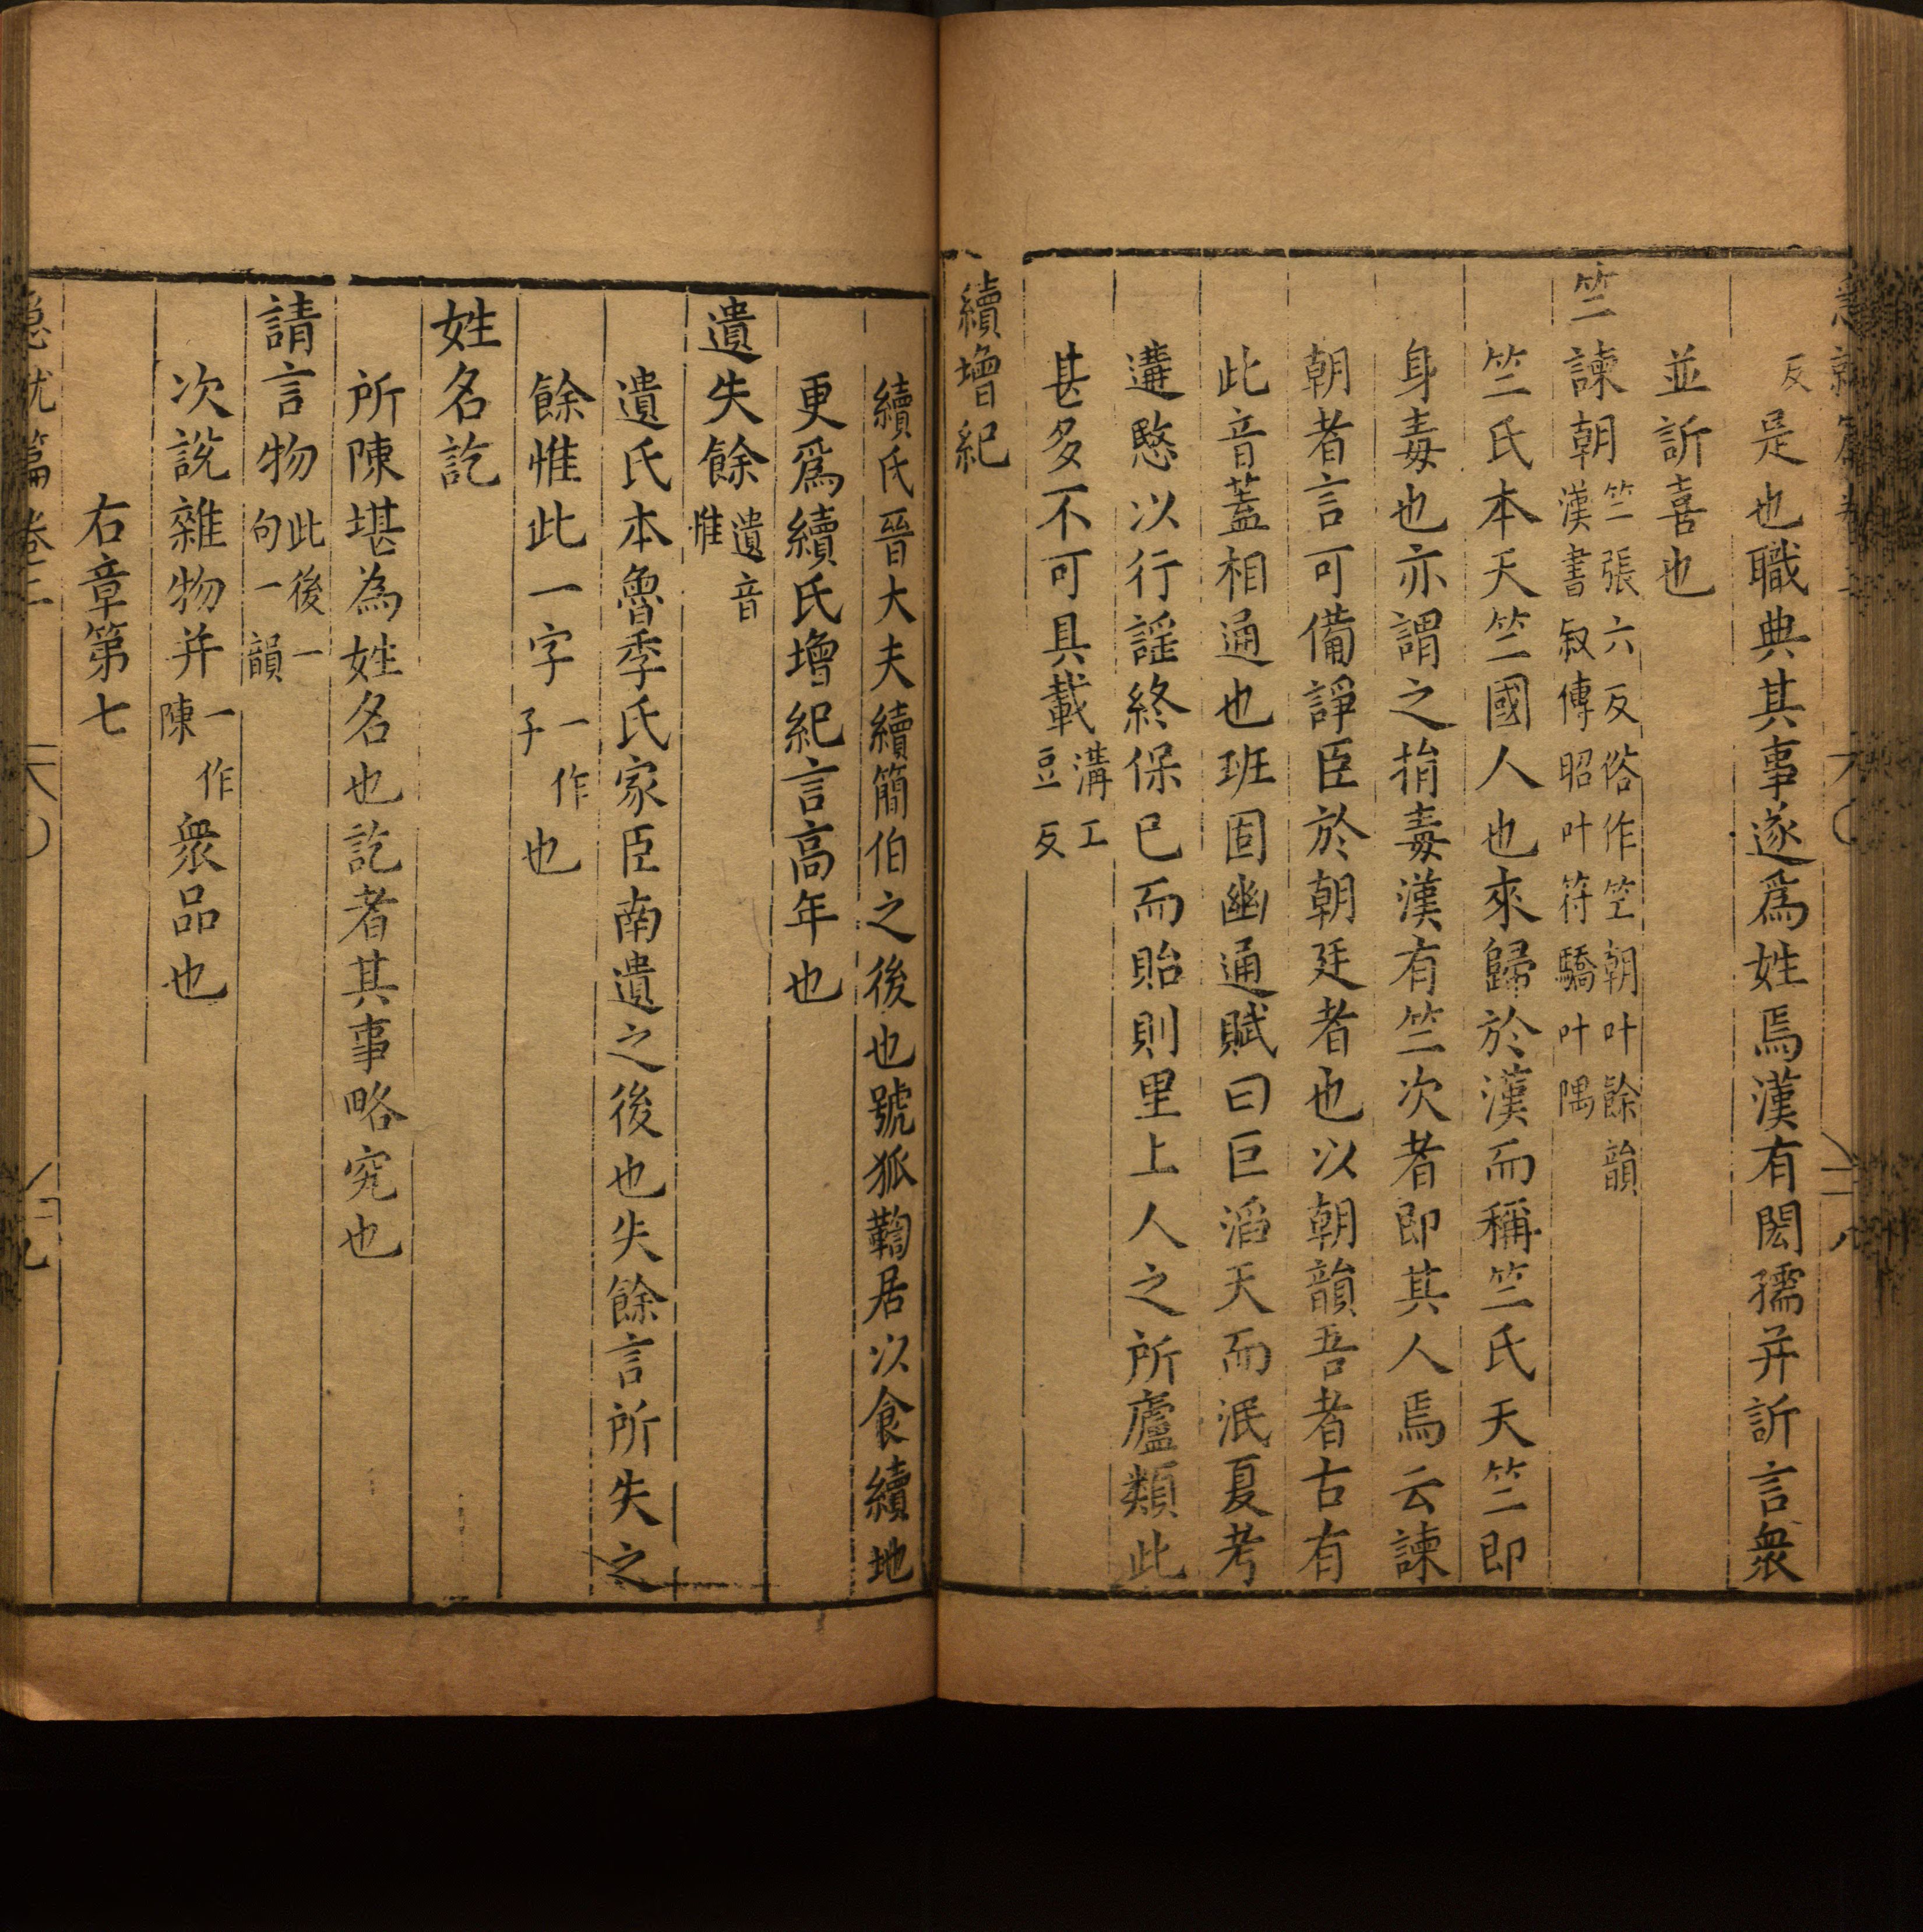 反是也職典其事遂爲姓焉漢有閎孺幷訢言衆
並訢喜也
竺諫朝竺張六反俗作笁朝叶餘韻漢書叙傳昭叶符驕叶隅
竺氏本天竺國人也來歸於漢而稱竺氏天竺即
身毒也亦謂之捐毒漢有竺次者即其人焉云諫
朝者言可備諍臣於朝廷者也以朝韻吾者古有
此音蓋相通也班固幽通賦曰巨滔天而泯夏考
遘愍以行謡終保已而貽則里上人之所廬類此
甚多不可具載溝工豆反
續增紀
續氏晉大夫續簡伯之後也號狐鞫居以食續地
更爲續氏增紀言高年也
遺失餘遺音惟
遺氏本魯季氏家臣南遺之後也失餘言所失之
餘惟此一字一作子也
姓名訖
所陳堪為姓名也訖者其事略究也
請言物此後一句一韻
次說雜物并一作陳衆品也
右章第七
急就篇卷二